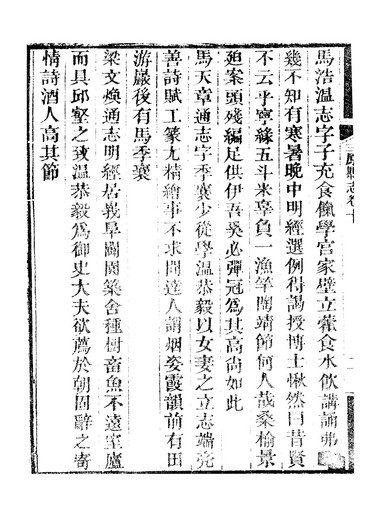 馬浩溫志字子充食餼學官家壁立虀食水飲講誦弗
幾不知有寒暑晚中明經選例得謁授博士愀然曰昔賢
不云乎寧緣五斗米辜負一漁竿陶靖節何人哉桑榆景
廹案頭殘編足供伊吾奚必彈冠爲其高尚如此
馬天章通志字季襄少從學溫恭毅以女妻之立志端亮
善詩賦工篆尤精繪事不求聞達人謂烟姿霞韻前有田
游巖後有馬季襄
梁文煥通志明經居峩阜闢園築舍種樹畜魚不遠室廬
而具邱壑之致溫恭毅爲御史大夫欲薦於朝固辭之寄
情詩酒人高其節
三原縣志卷十